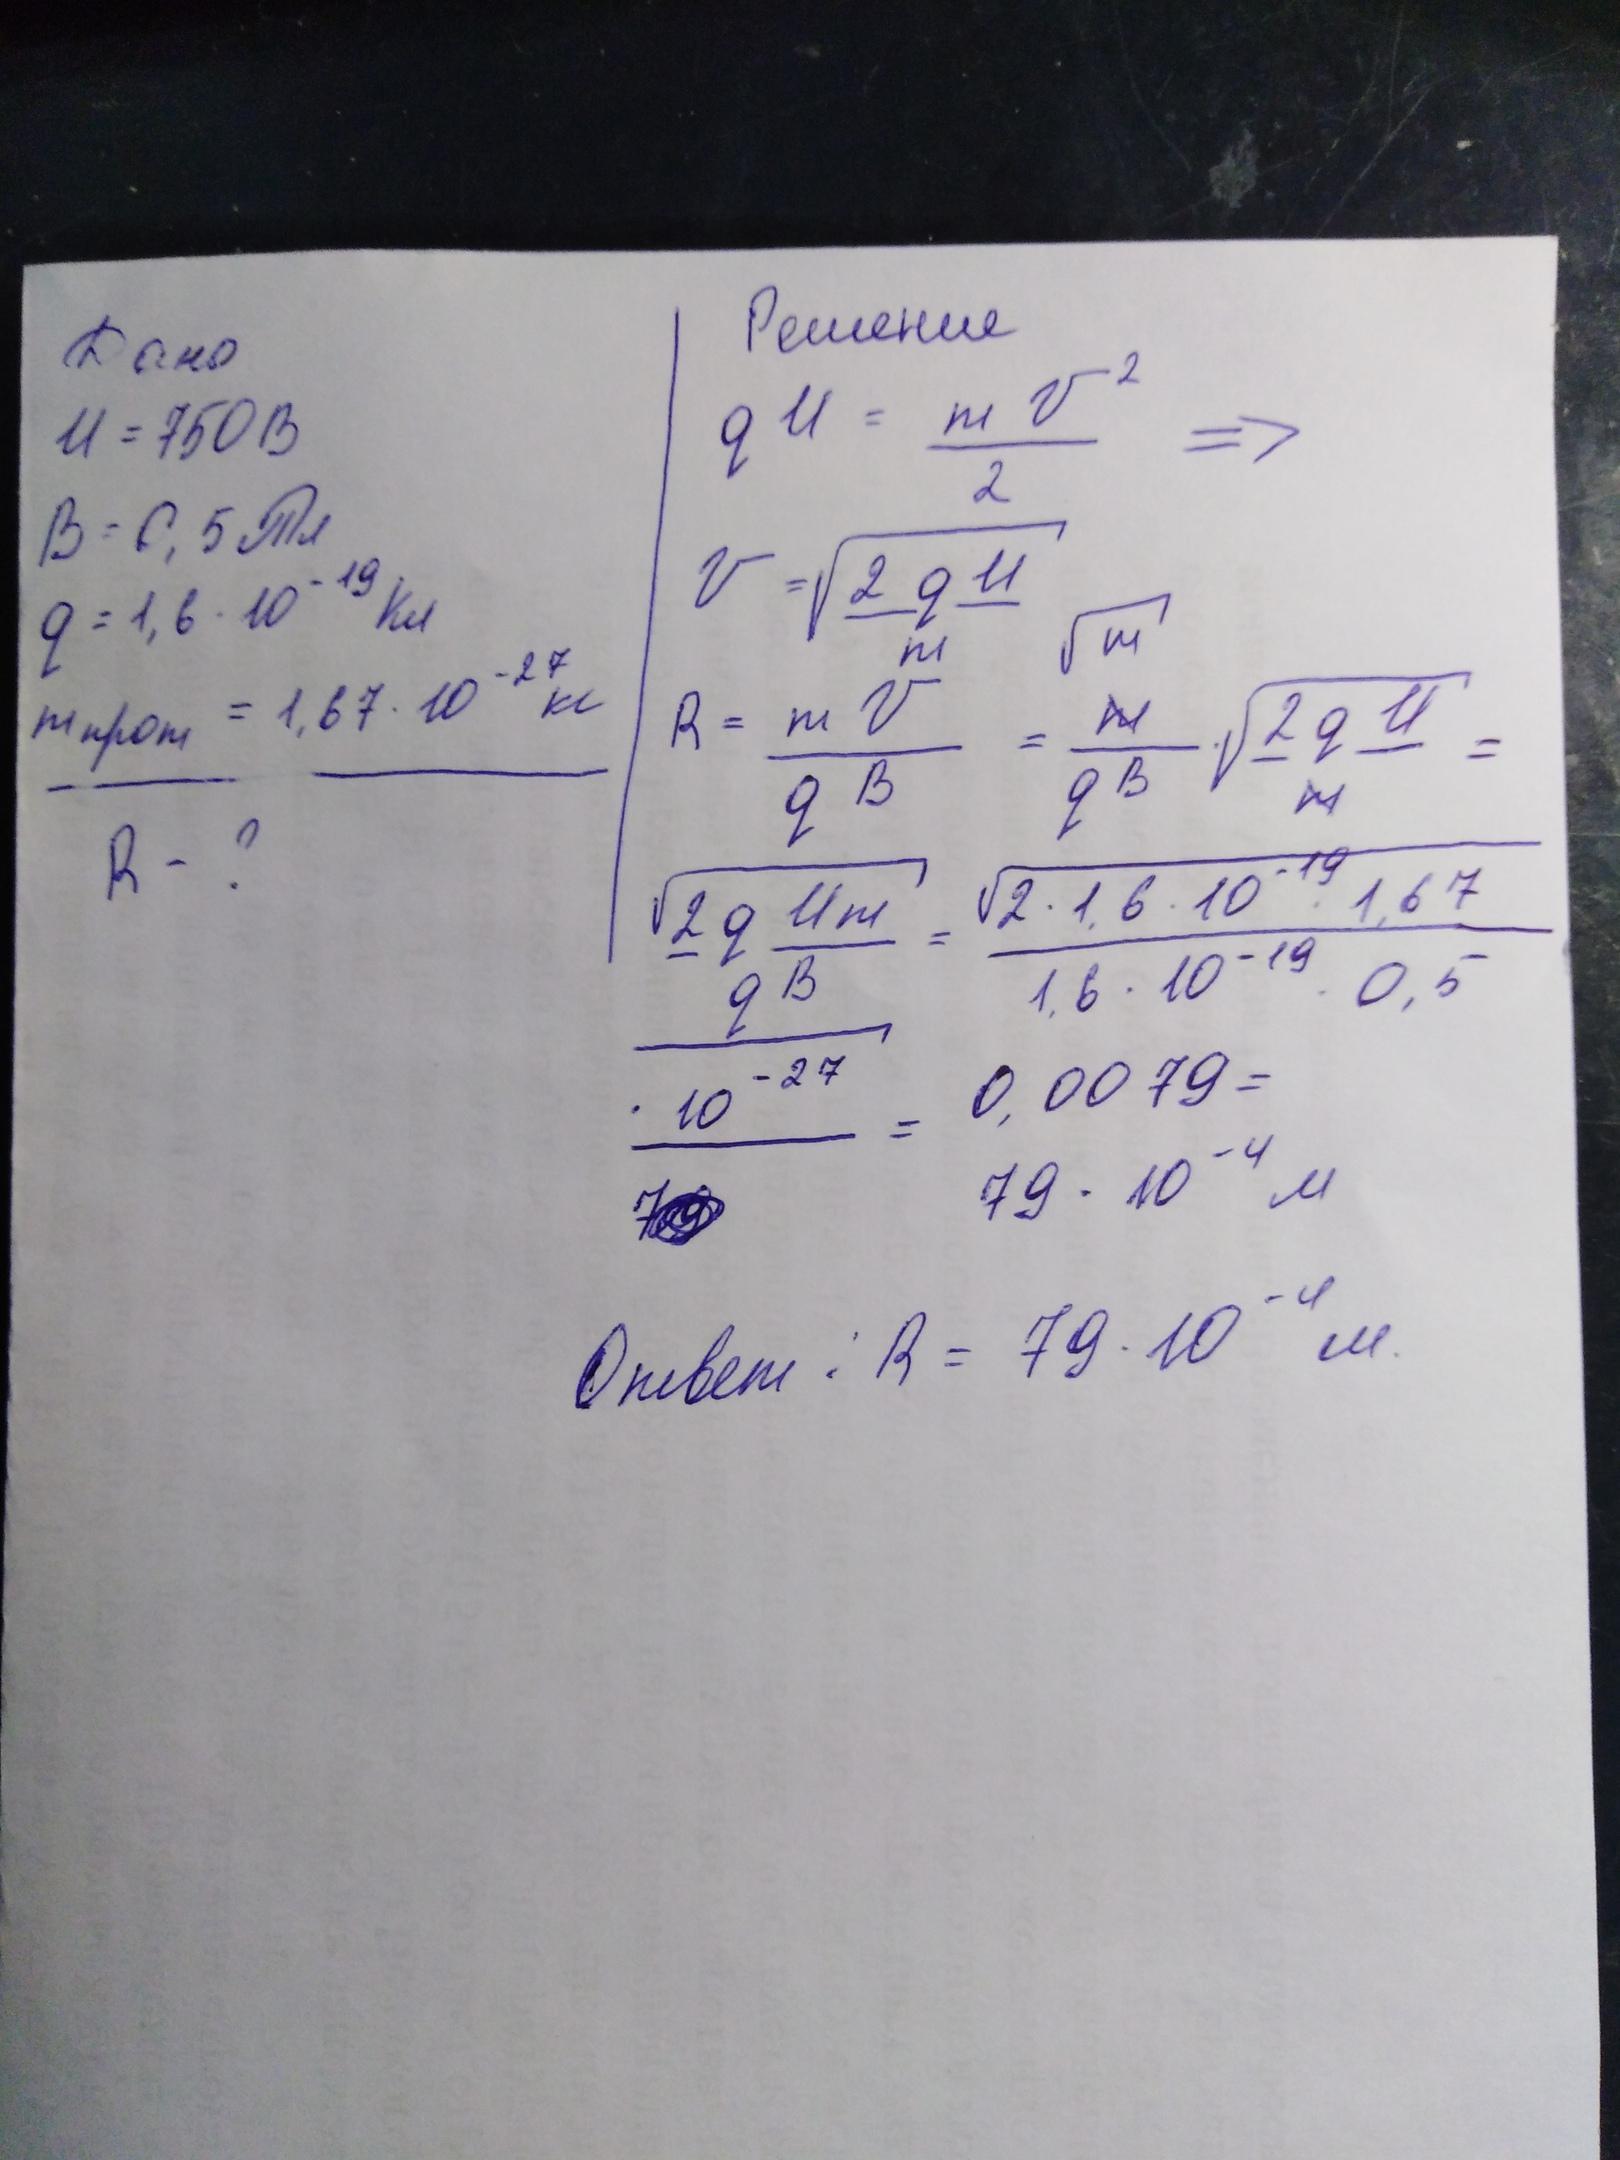 Дано
U = 750 В
B = 0,5 Тл
q = 1,6 · 10^-19 Кл
m прот = 1,67 · 10^-27 кг
R - ?
Решение
qU = mV^2 / 2 =>
V = √(2qU / m)
R = mV / qB = √m m / qB · √(2qU / m) =
√(2qUm) / qB = √(2 · 1,6 · 10^-19 · 1,67 / 1,6 · 10^-19 · 0,5
· 10^-27 = 0,0079 =
79 · 10^-4 м
Ответ : R = 79 · 10^-4 м.